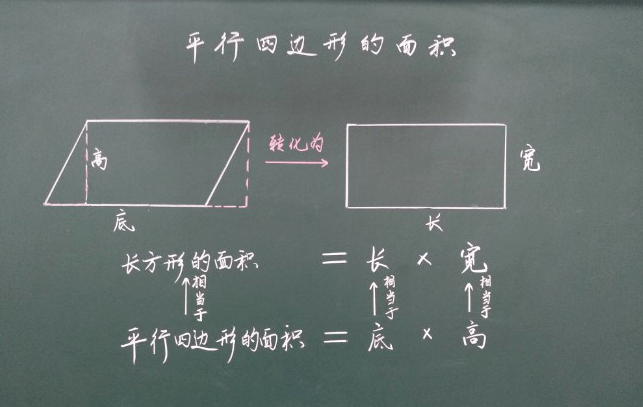 平行四边形的面积
高
转化为
宽
底
长
长方形的面积 = 长 × 宽
相当于 相当于 相当于
平行四边形的面积 = 底 × 高